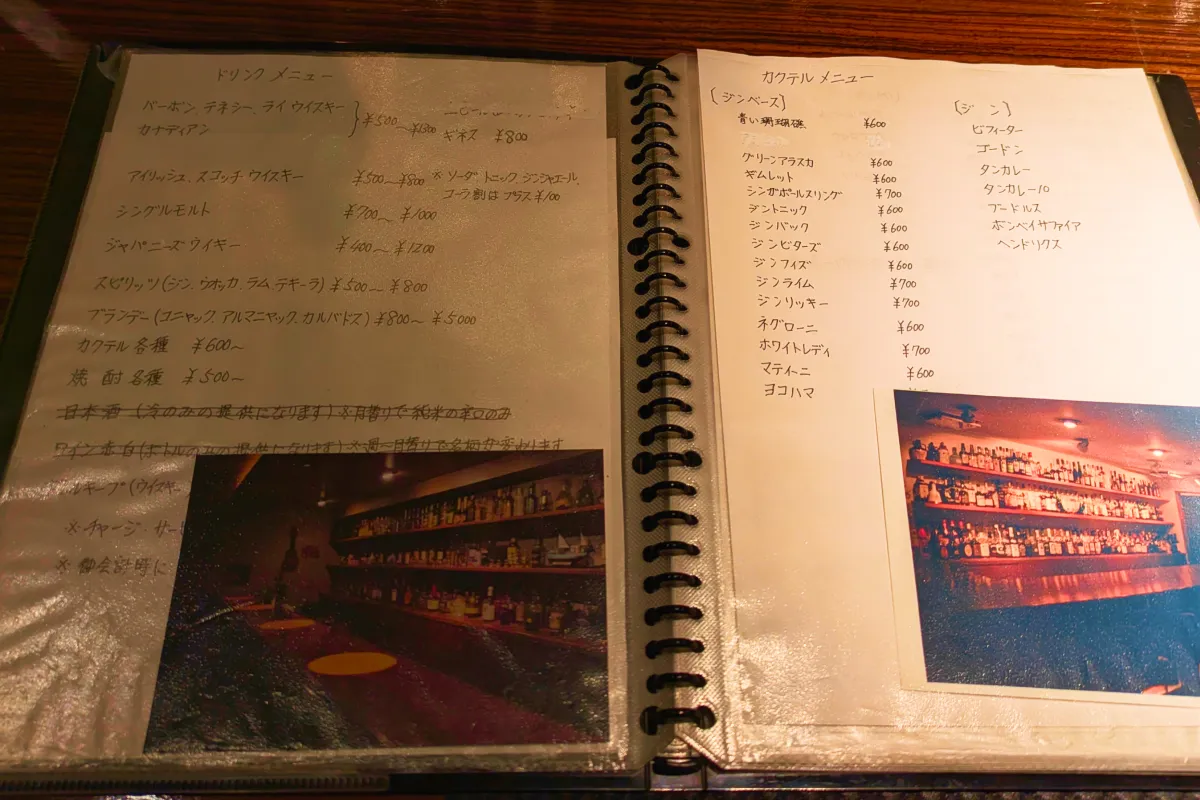 ドリンク メニュー
バーボン、テネシー、ライ ウイスキー
カナディアン
¥500〜¥1300
ギネス ¥800
アイリッシュ、スコッチ ウイスキー ¥500〜¥800
※ ソーダ トニック ジンジャエール、
コーラ割は プラス ¥100
シングルモルト ¥700〜 ¥1000
ジャパニーズウイキー ¥400〜 ¥1200
スピリッツ(ジン、ウオッカ、ラム、テキーラ) ¥500〜 ¥800
ブランデー(コニャック、アルマニャック、カルバドス) ¥800〜 ¥5000
カクテル 各種 ¥600〜
焼酎 各種 ¥500〜
日本酒 (冷のみの提供になります) ※月替りで 純米の辛口のみ
ワイン赤白(ボトルのみの提供になります)※週〜月替りで名柄が変ります
ルキープ(ウイスキー
※ チャージ・サー
※ 御会計時に
カクテル メニュー
(ジンベース)
青い珊瑚礁 ¥600
グリーンアラスカ ¥600
ギムレット ¥600
シンガポールスリング ¥700
ジントニック ¥600
ジンバック ¥600
ジンビターズ ¥600
ジンフィズ ¥600
ジンライム ¥700
ジンリッキー ¥700
ネグローニ ¥600
ホワイトレディ ¥700
マティーニ ¥600
ヨコハマ
(ジン)
ビフィーター
ゴードン
タンカレー
タンカレー10
ブードルス
ボンベイサファイア
ヘンドリクス